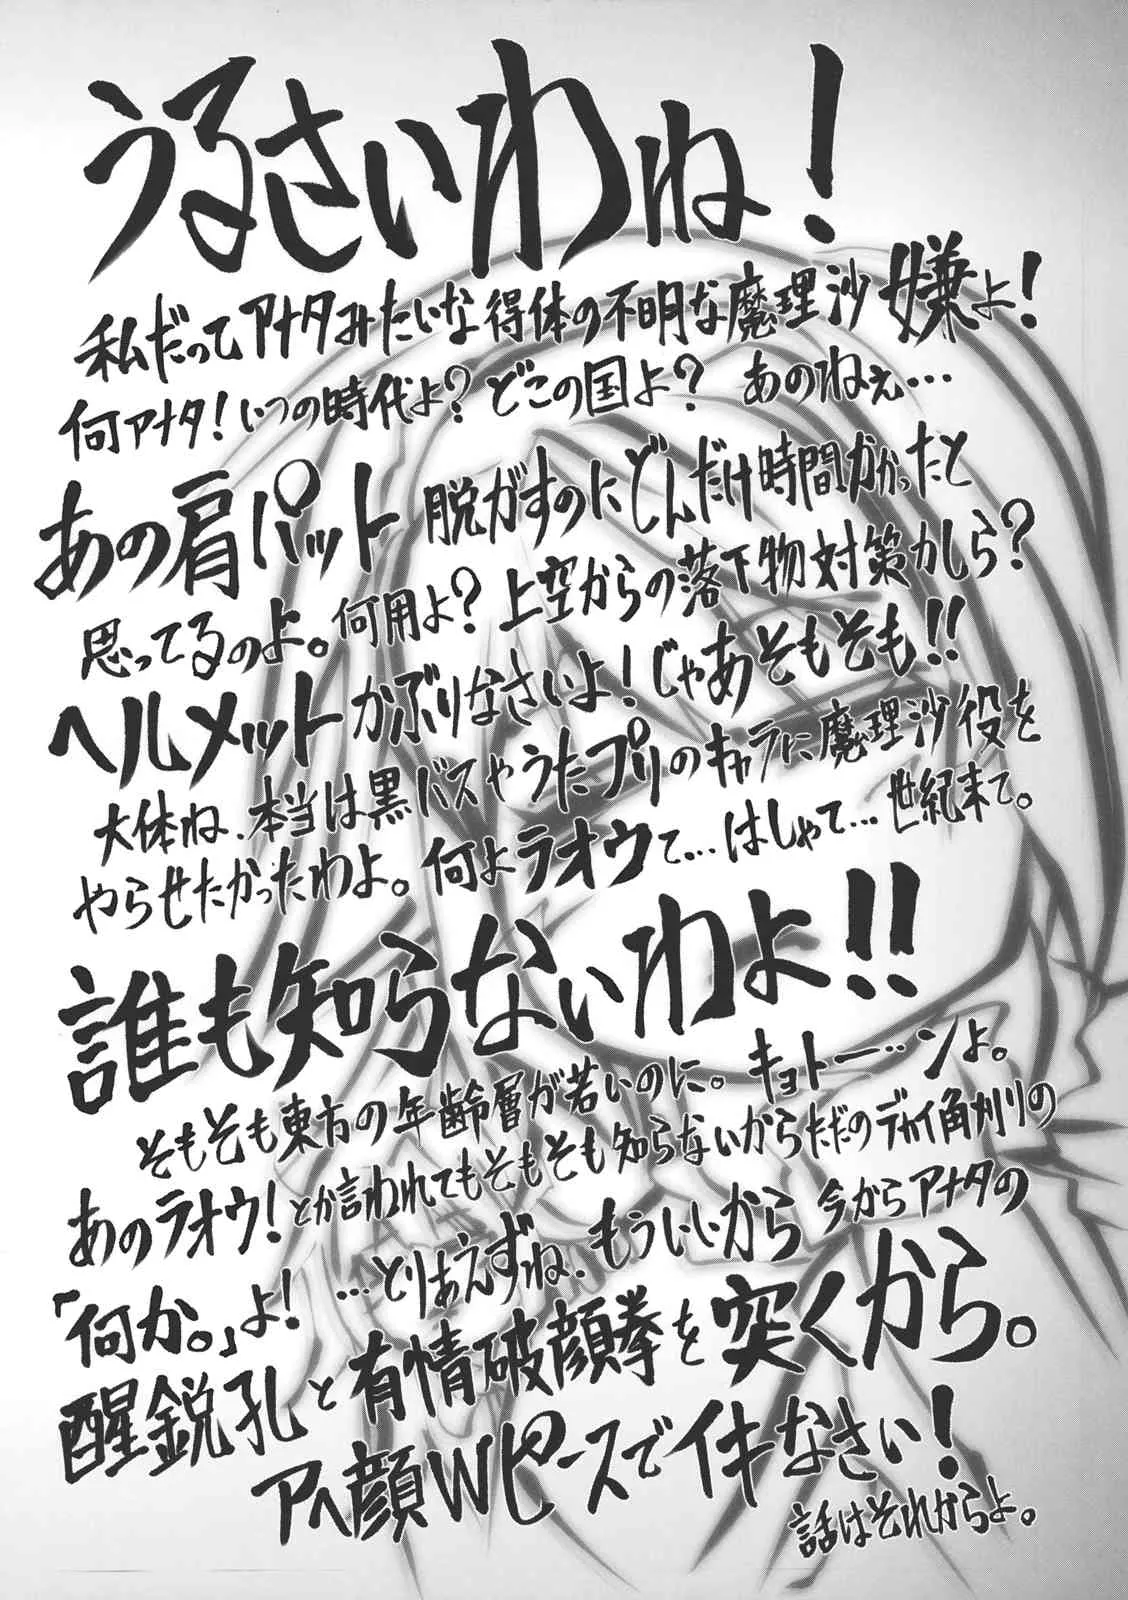 うるさいわね!
私だってアナタみたいな得体の不明な魔理沙嫌よ!
何アナタ!いつの時代よ?どこの国よ? あのねぇ…
あの肩パット脱がすのにどんだけ時間かかったと
思ってるのよ。何用よ?上空からの落下物対策かしら?
ヘルメットかぶりなさいよ!じゃあそもそも!!
大体ね、本当は黒バスやうたプリのキャラに魔理沙役を
やらせたかったわよ。何よラオウて…はしゃて…世紀末て。
誰も知らないわよ!!
そもそも東方の年齢層が若いのに。キョトーーンよ。
あのラオウ!とか言われてもそもそも知らないからただのデカイ角刈りの
「何か。」よ! …とりあえずね、もういいから今からアナタの
醒鋭孔と有情破顔拳を突くから。
アヘ顔Wピースでイキなさい!
話はそれからよ。